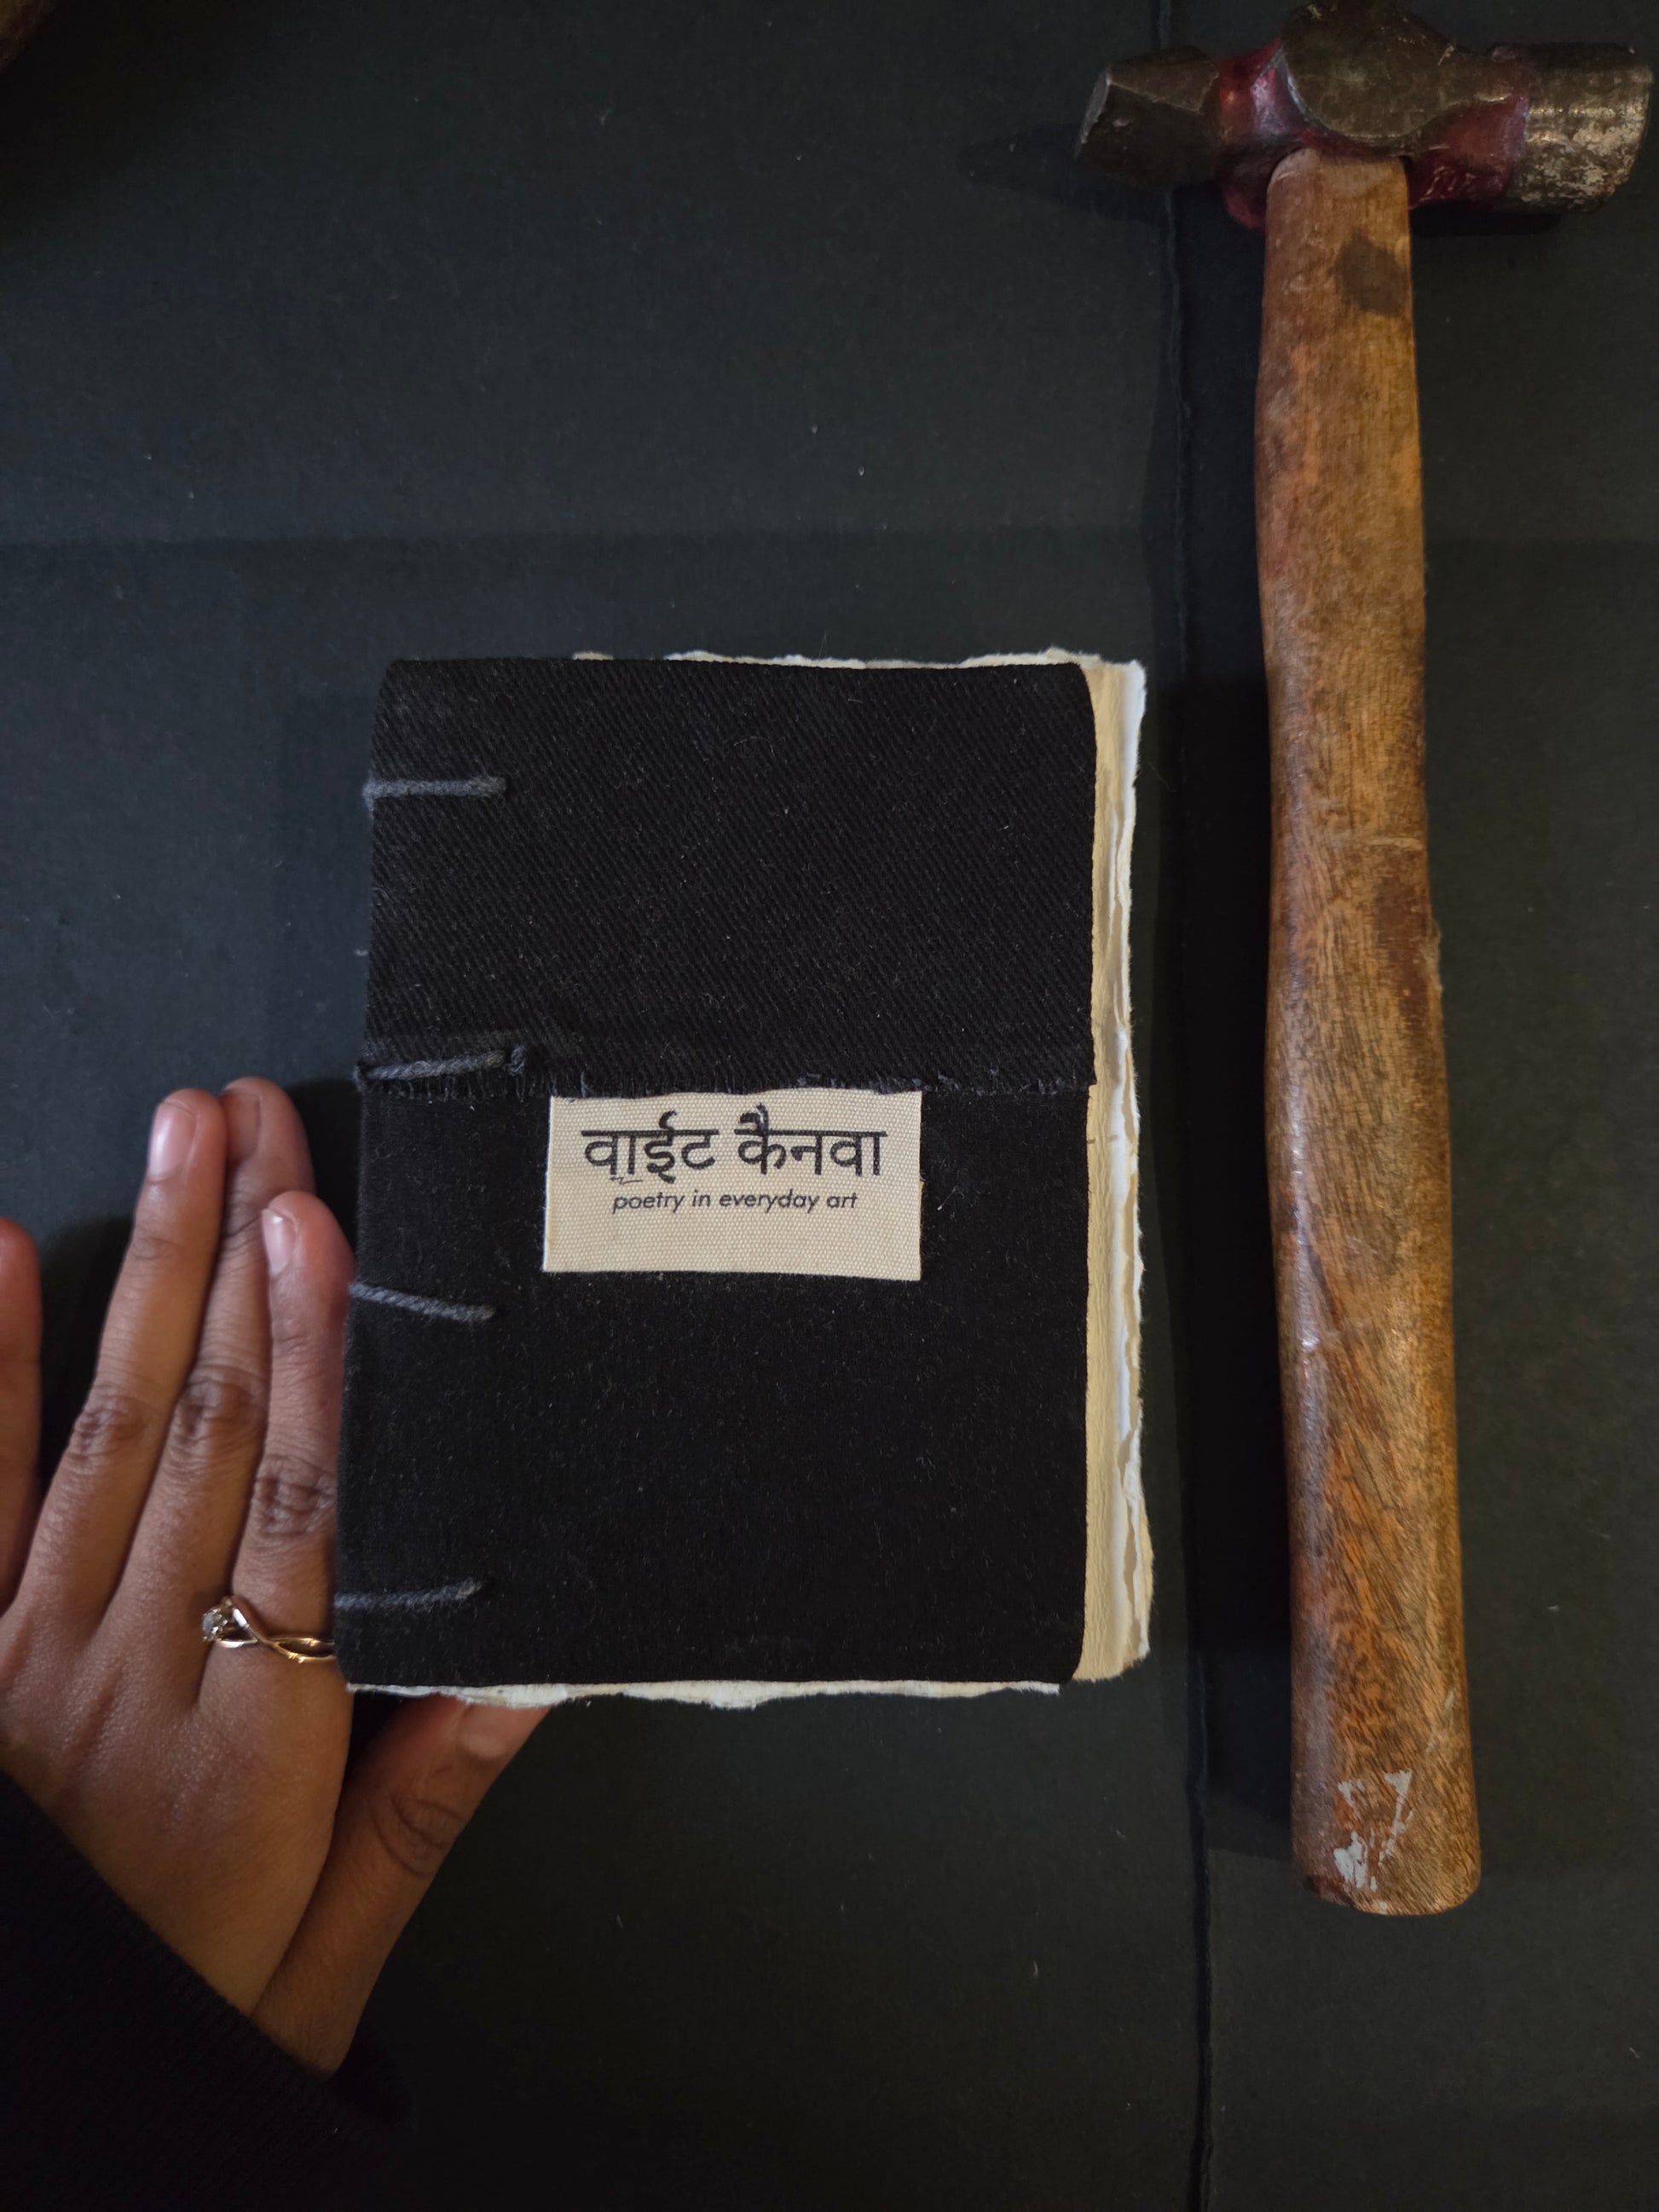 वाईट कैनवा
poetry in everyday art